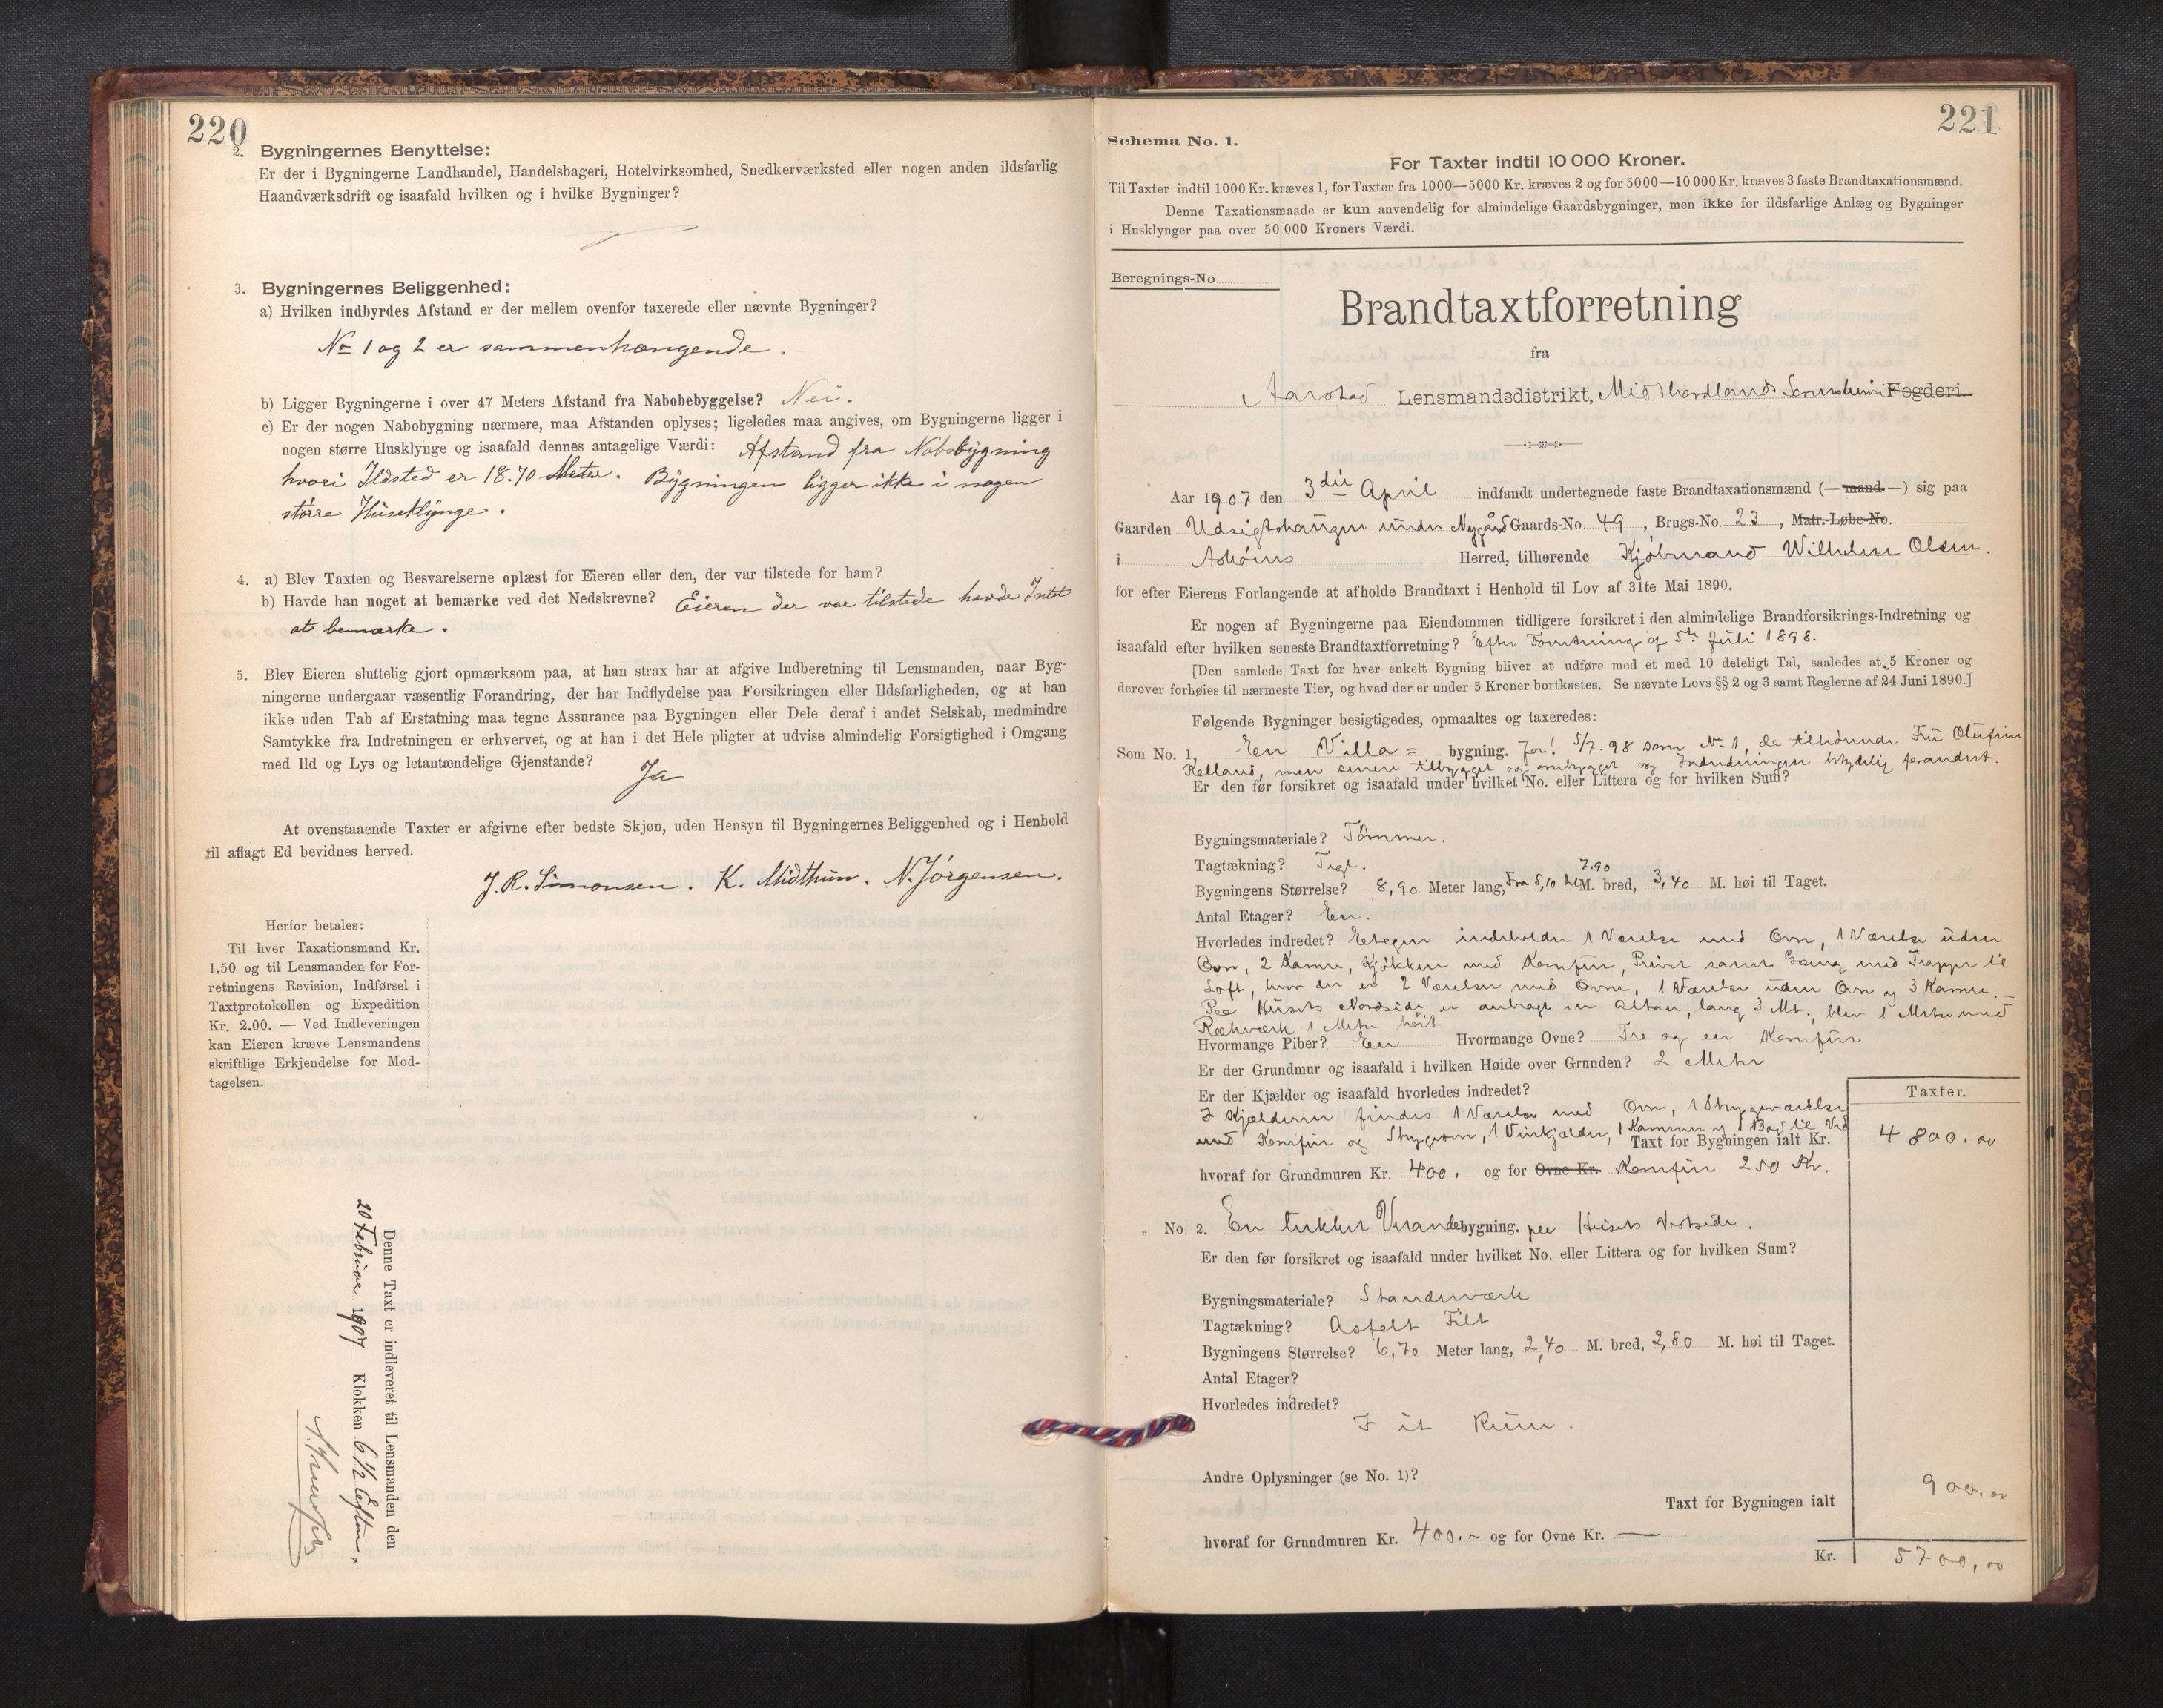 220
2. Bygningernes Benyttelse:
Er der i Bygningerne Landhandel, Handelsbageri, Hotelvirksomhed, Snedkerværksted eller nogen anden ildsfarlig
Haandværksdrift og isaafald hvilken og i hvilke Bygninger?
3. Bygningernes Beliggenhed:
a) Hvilken indbyrdes Afstand er der mellem ovenfor taxerede eller nævnte Bygninger?
No 1 og 2 er sammenhængende.
b) Ligger Bygningerne i over 47 Meters Afstand fra Nabobebyggelse? Nei.
c) Er der nogen Nabobygning nærmere, maa Afstanden oplyses; ligeledes maa angives, om Bygningerne ligger i
nogen større Husklynge og isaafald dennes antagelige Værdi: Afstand fra Nabobygning
hvori Ildsted er 18.70 Meter. Bygningen ligger ikke i nogen
större Huseklynge.
4. a) Blev Taxten og Besvarelserne oplæst for Eieren eller den, der var tilstede for ham?
b) Havde han noget at bemærke ved det Nedskrevne? Eieren der var tilstede havde Intet
at bemærke.
5. Blev Eieren sluttelig gjort opmærksom paa, at han strax har at afgive Indberetning til Lensmanden, naar Byg-
ningerne undergaar væsentlig Forandring, der har Indflydelse paa Forsikringen eller Ildsfarligheden, og at han
ikke uden Tab af Erstatning maa tegne Assurance paa Bygningen eller Dele deraf i andet Selskab, medmindre
Samtykke fra Indretningen er erhvervet, og at han i det Hele pligter at udvise almindelig Forsigtighed i Omgang
med Ild og Lys og letantændelige Gjenstande? Ja
At ovenstaaende Taxter er afgivne efter bedste Skjøn, uden Hensyn til Bygningernes Beliggenhed og i Henhold
til aflagt Ed bevidnes herved.
J. R. Simonsen. K. Midthun. N. Jörgensen.
Herfor betales:
Til hver Taxationsmand Kr.
1.50 og til Lensmanden for For-
retningens Revision, Indførsel i
Taxtprotokollen og Expedition
Kr. 2.00. — Ved Indleveringen
kan Eieren kræve Lensmandens
skriftlige Erkjendelse for Mod-
tagelsen.
Denne Taxt er indleveret til Lensmanden den
20 Februar 1907 Klokken 6 1/2 Eftm.
221
Schema No. 1.
For Taxter indtil 10 000 Kroner.
Til Taxter indtil 1000 Kr. kræves 1, for Taxter fra 1000—5000 Kr. kræves 2 og for 5000—10 000 Kr. kræves 3 faste Brandtaxationsmænd.
Denne Taxationsmaade er kun anvendelig for almindelige Gaardsbygninger, men ikke for ildsfarlige Anlæg og Bygninger
i Husklynger paa over 50 000 Kroners Værdi.
Beregnings-No.
Brandtaxtforretning
fra
Aarstad Lensmandsdistrikt, Midthordlands Fogderi.
Aar 1907 den 3die April indfandt undertegnede faste Brandtaxationsmænd (— mand —) sig paa
Gaarden Udsigtshaugen under Nygård Gaards-No. 49, Brugs-No. 23, Matr.-Løbe-No.
i Askøens Herred, tilhørende Kjöbmand Wilhelm Olsen.
for efter Eierens Forlangende at afholde Brandtaxt i Henhold til Lov af 31te Mai 1890.
Er nogen af Bygningerne paa Eiendommen tidligere forsikret i den almindelige Brandforsikrings-Indretning og
isaafald efter hvilken seneste Brandtaxtforretning? Efter Forretning af 5te Juli 1898.
[Den samlede Taxt for hver enkelt Bygning bliver at udføre med et med 10 deleligt Tal, saaledes at 5 Kroner og
derover forhøies til nærmeste Tier, og hvad der er under 5 Kroner bortkastes. Se nævnte Lovs §§ 2 og 3 samt Reglerne af 24 Juni 1890.]
Følgende Bygninger besigtigedes, opmaaltes og taxeredes:
Som No. 1, En Villa = bygning. For! 5/7. 98 som No 1, da tilhörende Fru
Kelland, men senere tilbygget og ombygget og Indredningen betydelig forandret.
Er den før forsikret og isaafald under hvilket No. eller Littera og for hvilken Sum?
Bygningsmateriale? Tömmer.
Tagtækning? Tegl.
Bygningens Størrelse? 8,90 Meter lang, fra 5,10 til 7.90 M. bred, 3,40 M. høi til Taget.
Antal Etager? En.
Hvorledes indredet? Etagen indeholder 1 Værelse med Ovn, 1 Værelse uden
Ovn, 2 Kamre, Kjökken med Komfur, Privet samt Gang med Trappe til
Loft, hvor der er 2 Værelser med Ovne, 1 Værelse uden Ovn og 3 Kamre. —
Paa Husets Nordside er anbragt en Altan, lang 3 Mt., bred 1 Meter med
Rækværk 1 Meter höit
Hvormange Piber? En Hvormange Ovne? Tre og en Komfur
Er der Grundmur og isaafald i hvilken Høide over Grunden? 2 Meter
Er der Kjælder og isaafald hvorledes indredet?
I Kjælderen findes 1 Værelse med Ovn, 1 Strygeværelse
med Komfur og Strygeovn, 1 Vinkjælder, 1 Kammer og 1 Bod til Ved
Taxter.
Taxt for Bygningen ialt Kr. 4800.00
hvoraf for Grundmuren Kr. 400. og for Ovne Kr. Komfur 250 Kr.
" No. 2. En lukket Verandabygning. paa Husets Vestside.
Er den før forsikret og isaafald under hvilket No. eller Littera og for hvilken Sum?
Bygningsmateriale? Standerværk
Tagtækning? Asfalt Filt
Bygningens Størrelse? 6,70 Meter lang, 2,40 M. bred, 2,80 M. høi til Taget.
Antal Etager?
Hvorledes indredet?
I et Rum.
Andre Oplysninger (se No. 1)?
Taxt for Bygningen ialt 900.00
hvoraf for Grundmuren Kr. 400.- og for Ovne Kr. —
Kr. 5700,00